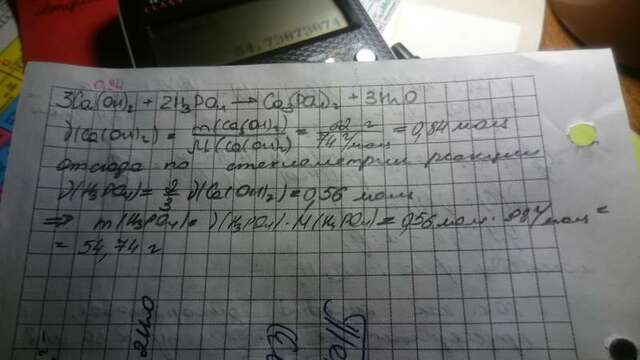 54.79873074
0,84
3Ca(OH)₂ + 2H₃PO₄ → Ca₃(PO₄)₂ + 3H₂O
ν(Ca(OH)₂) = m(Ca(OH)₂) / M(Ca(OH)₂) = 62 г / 74 г/моль = 0,84 моль
отсюда по стехиометрии реакции
ν(H₃PO₄) = 2/3 ν(Ca(OH)₂) = 0,56 моль
⇒ m(H₃PO₄) = ν(H₃PO₄) · M(H₃PO₄) = 0,56 моль · 98 г/моль =
= 54,74 г
2H₂O